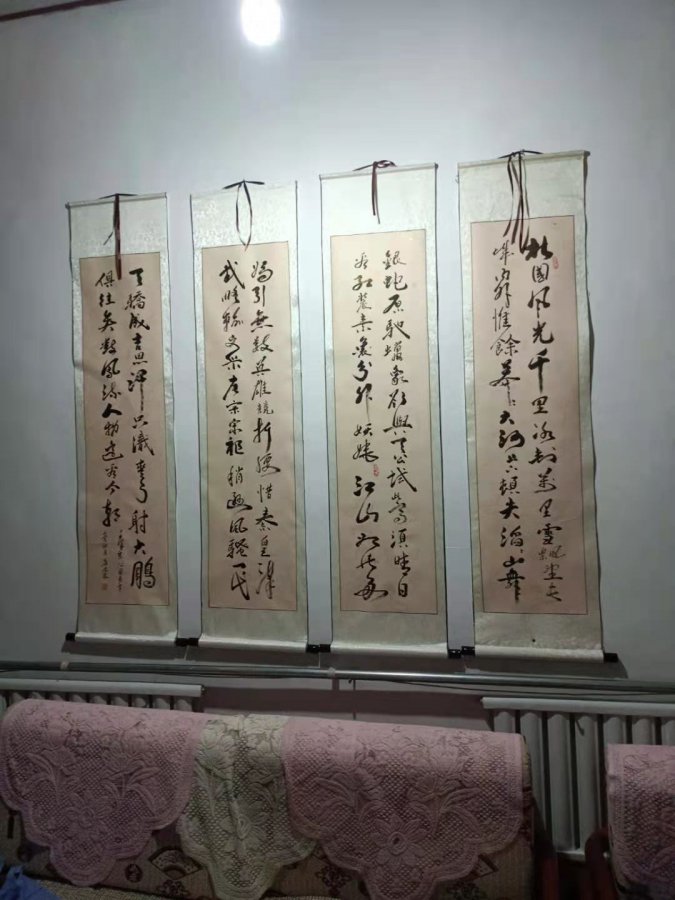 北國风光千里冰封萬里雪飄望长
城內外惟餘莽〻大河上下頓失滔〻山舞
銀蛇原馳蠟象欲與天公試比高須晴日
看红裝素裹分外妖娆江山如此多
嬌引無數英雄競折腰惜秦皇漢
武略輸文采唐宗宋祖稍遜風騷一代
天驕成吉思汗只識彎弓射大鵰
俱往矣數風流人物還看今朝